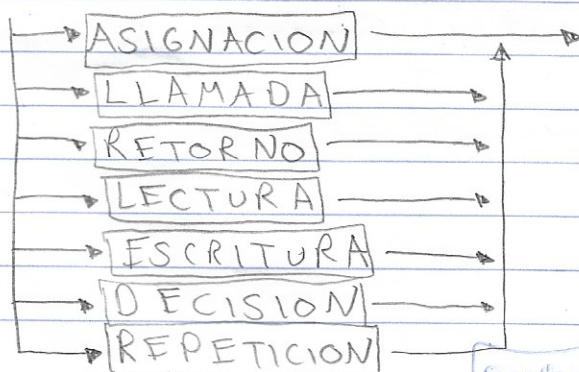 ASIGNACION
LLAMADA
RETORNO
LECTURA
ESCRITURA
DECISION
REPETICION